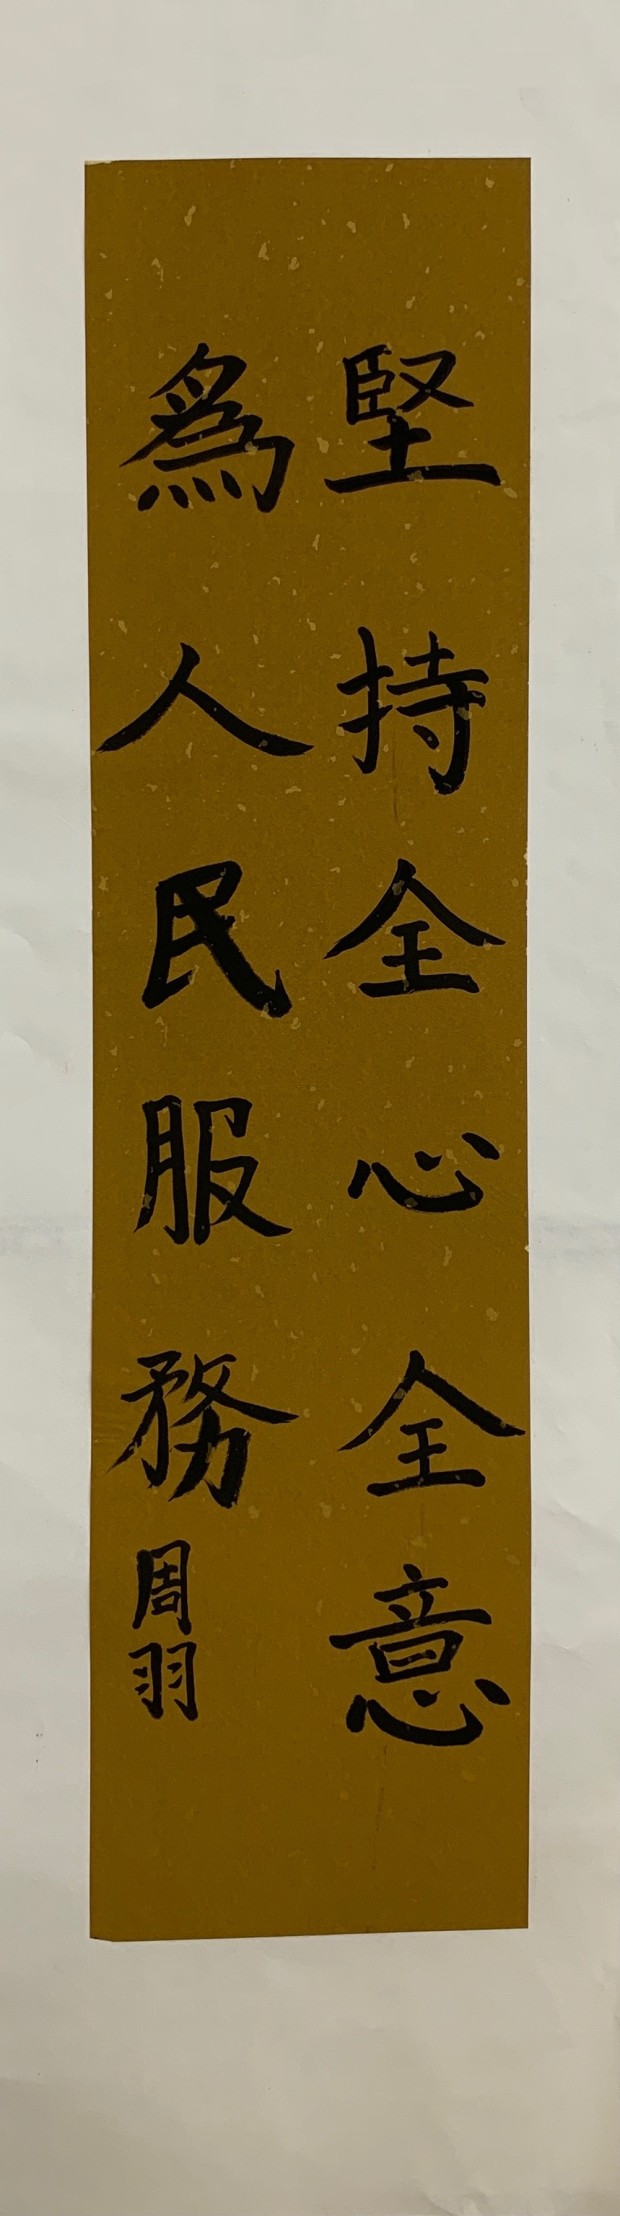 堅持全心全意
爲人民服務
周羽